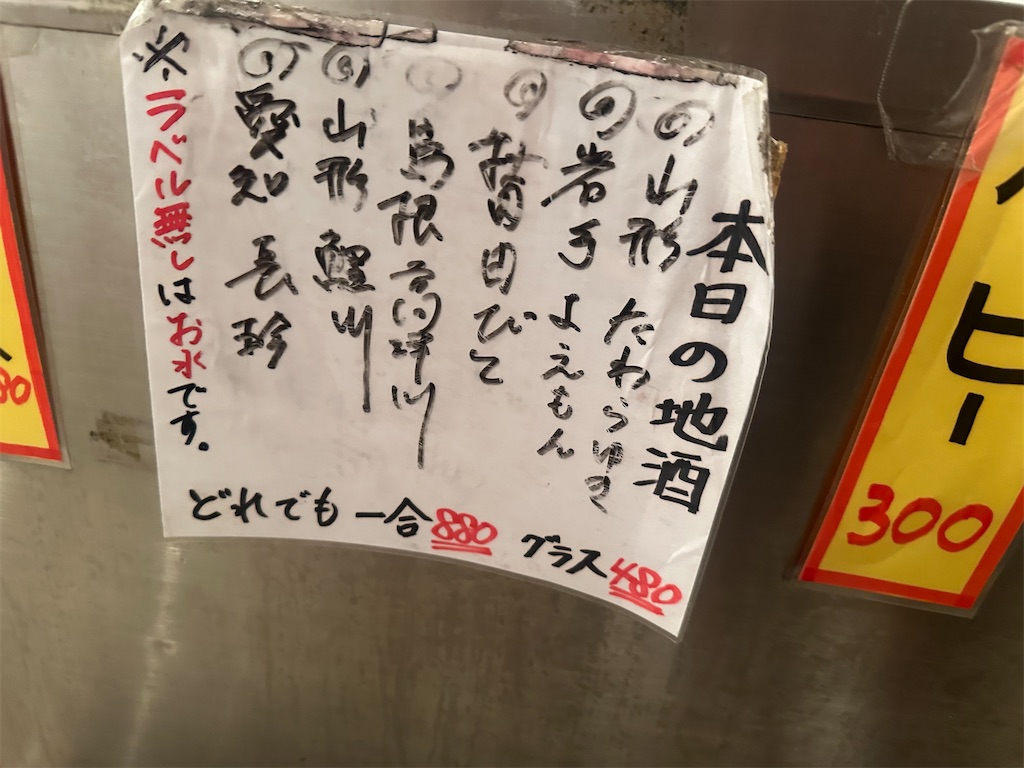 本日の地酒
の山形 たわらゆき
の岩手 よえもん
の 秋田 ひと
の 島根 高津川
の山形 鯉川
の愛知 長珍
※ラベル無しはお水です。
どれでも 一合880 グラス480
ヒー
300
80